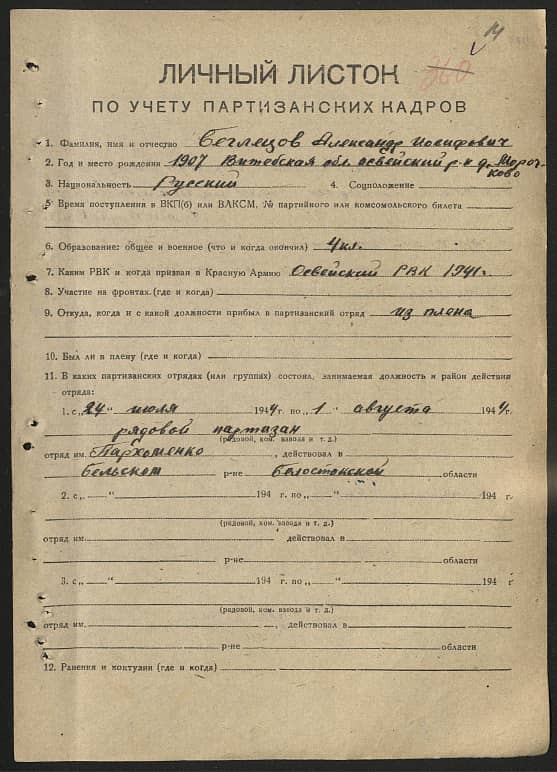 14
360
ЛИЧНЫЙ ЛИСТОК
ПО УЧЕТУ ПАРТИЗАНСКИХ КАДРОВ
1. Фамилия, имя и отчество Беглецов Александр Иосифович
2. Год и место рождения 1907 Витебская обл. Освейский р-н д. Мороч-
ково
3. Национальность Русский 4. Соцположение
5. Время поступления в ВКП(б) или ВЛКСМ, № партийного или комсомольского билета
6. Образование: общее и военное (что и когда окончил) 4 кл.
7. Каким РВК и когда призван в Красную Армию Освейский РВК 1941 г.
8. Участие на фронтах (где и когда)
9. Откуда, когда и с какой должности прибыл в партизанский отряд из плена
10. Был ли в плену (где и когда)
11. В каких партизанских отрядах (или группах) состоял, занимаемая должность и район действия
отряда:
1. с „24" июля 1944 г. по „1" августа 1944 г.
рядовой партизан
(рядовой, ком. взвода и т. д.)
отряд им. Пархоменко, действовал в
Бельском р-не Белостокской области
2. с „ " 194 г. по „ " 194 г.
(рядовой, ком. взвода и т. д.)
отряд им. , действовал в
р-не области
3. с „ " 194 г. по „ " 194 г.
(рядовой, ком. взвода и т. д.)
отряд им. , действовал в
р-не области
12. Ранения и контузии (где и когда)